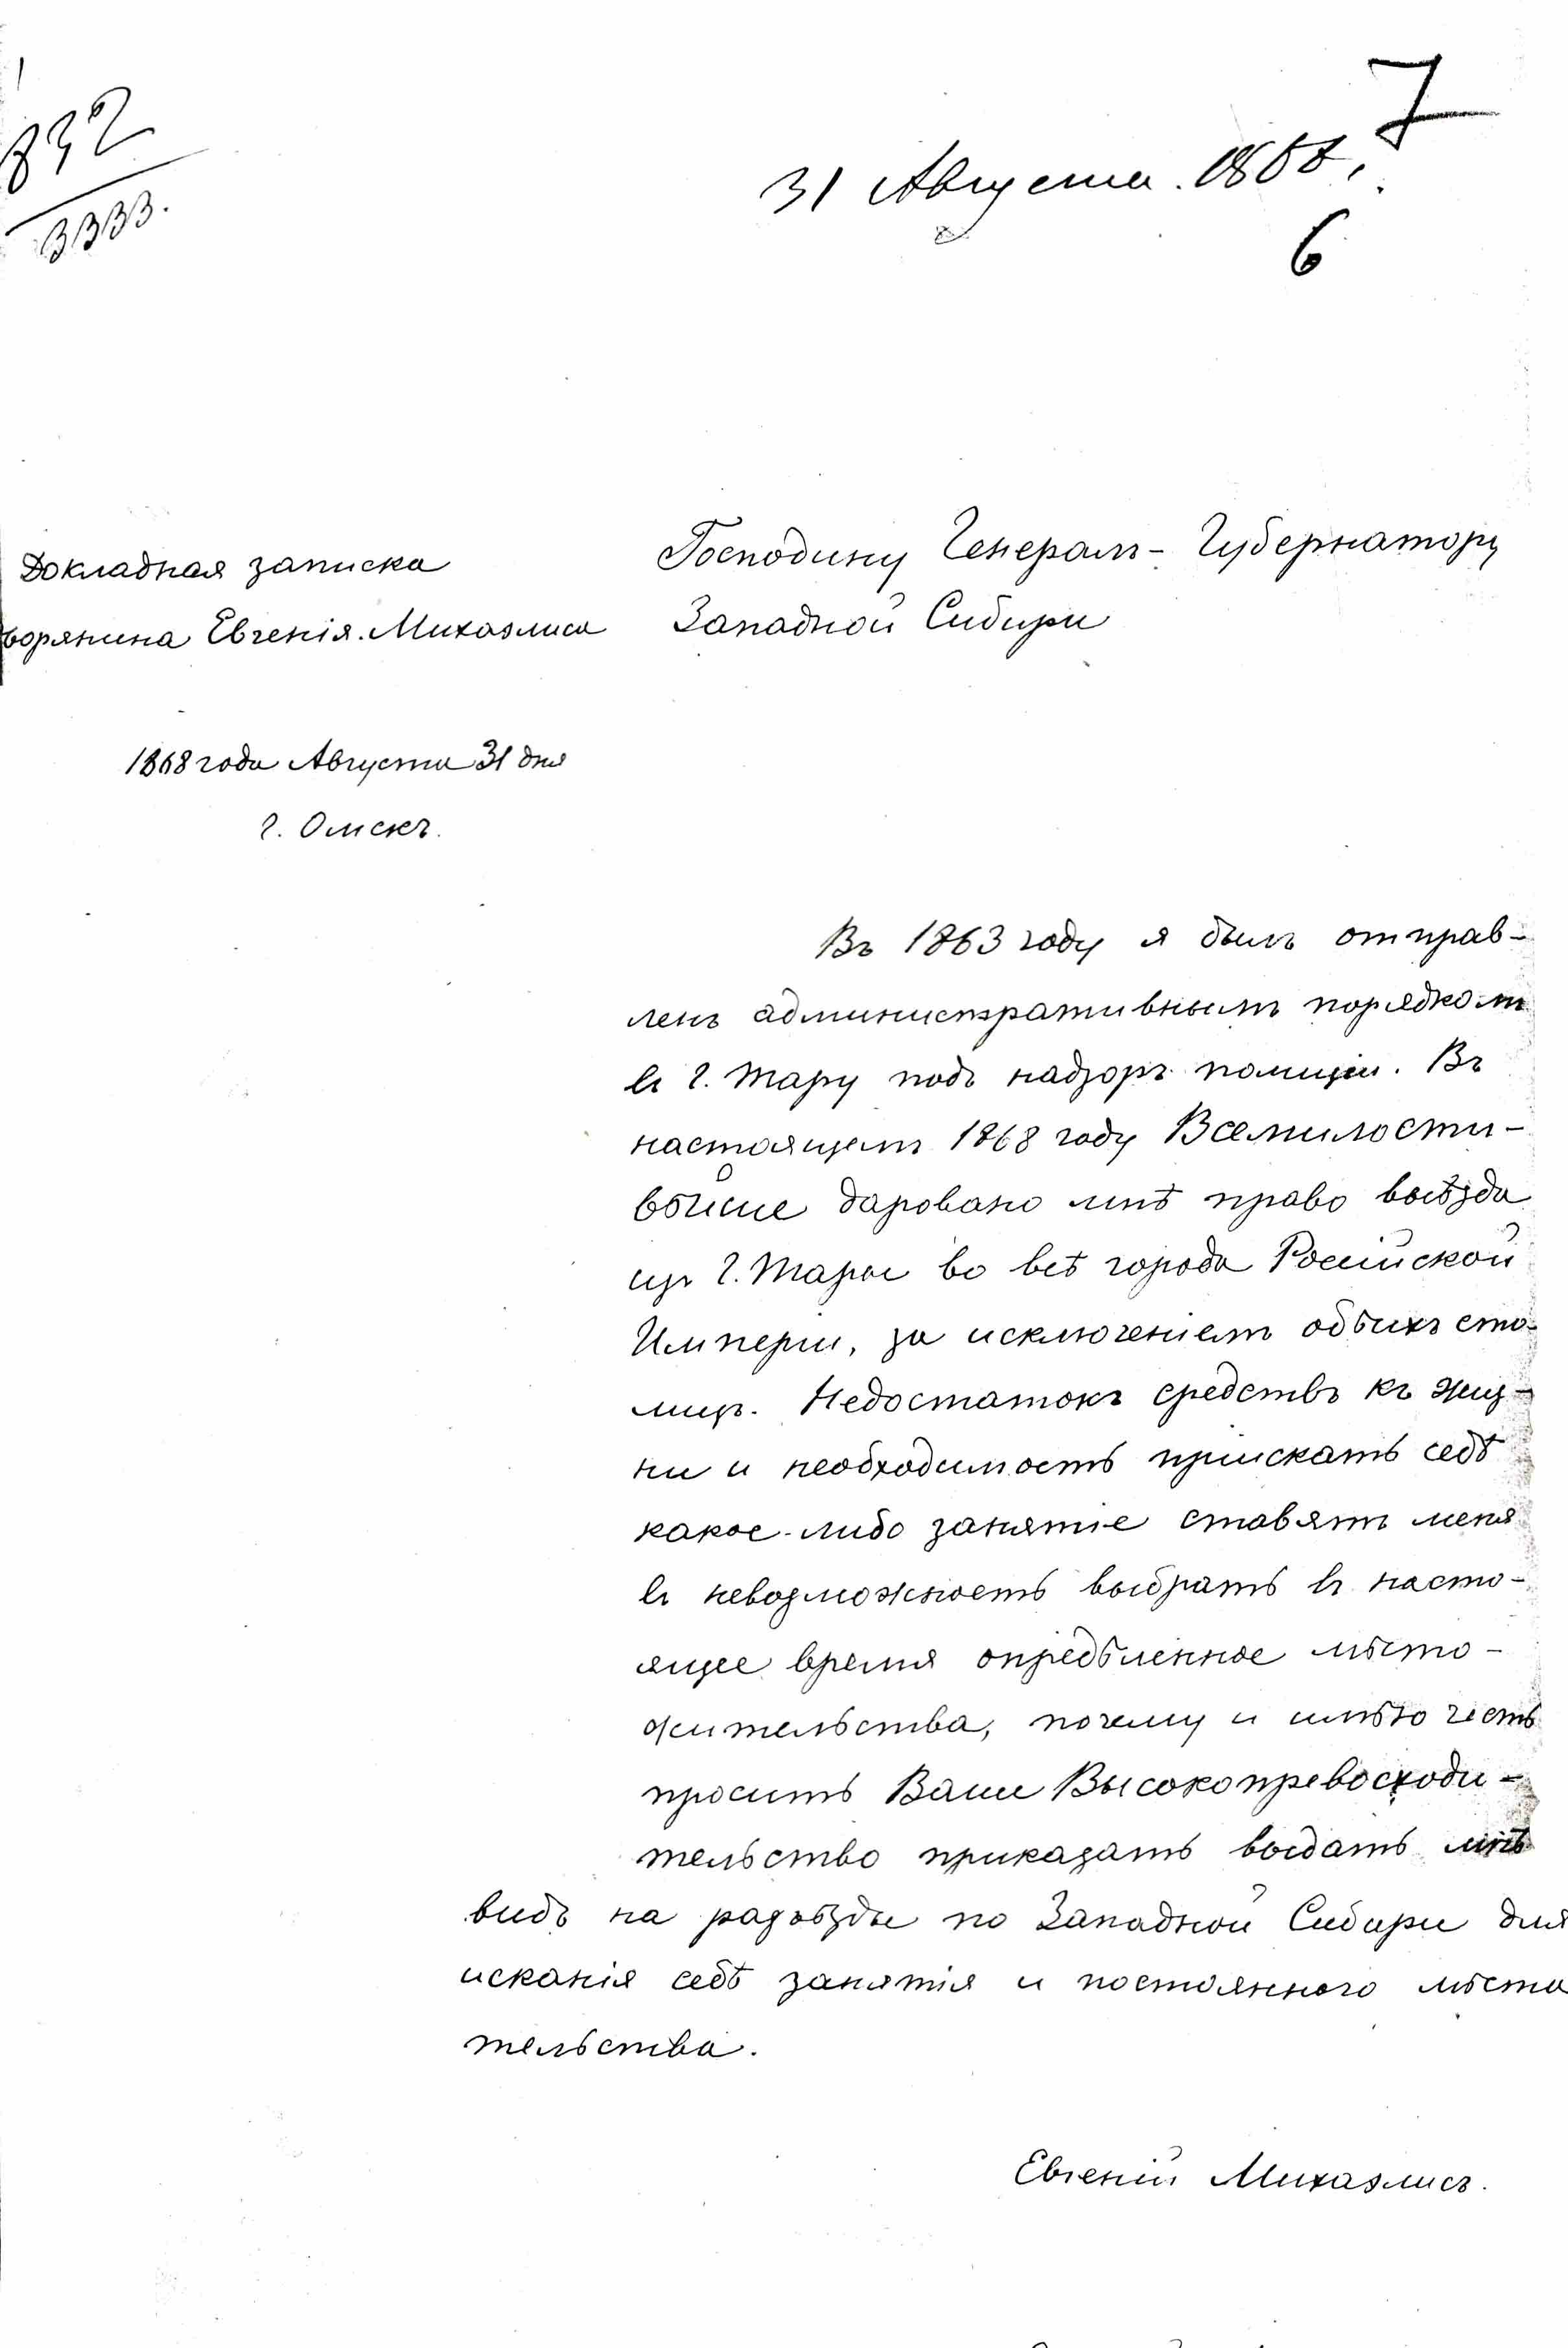 832
3333.
7
31 Августа. 1868.
6
Докладная записка
ворянина Евгенія Михаэлиса
1868 года Августа 31 дня
г. Омскъ.
Господину Генералъ-Губернатору
Западной Сибири
Въ 1863 году я былъ отправ-
ленъ административнымъ порядкомъ
въ г. Тару подъ надзоръ полиціи. Въ
настоящемъ 1868 году Всемилости-
вѣйше даровано мнѣ право выѣзда
изъ г. Тары во всѣ города Россійской
Имперіи, за исключеніемъ обѣихъ сто-
лицъ. Недостатокъ средствъ къ жиз-
ни и необходимость пріискать себѣ
какое-либо занятіе ставятъ меня
въ невозможность выбрать въ насто-
ящее время опредѣленное мѣсто-
жительства, почему и имѣю честь
просить Ваше Высокопревосходи-
тельство приказать выдать мнѣ
видъ на разъѣзды по Западной Сибири для
исканія себѣ занятія и постояннаго мѣста
тельства.
Евгеній Михаэлисъ.